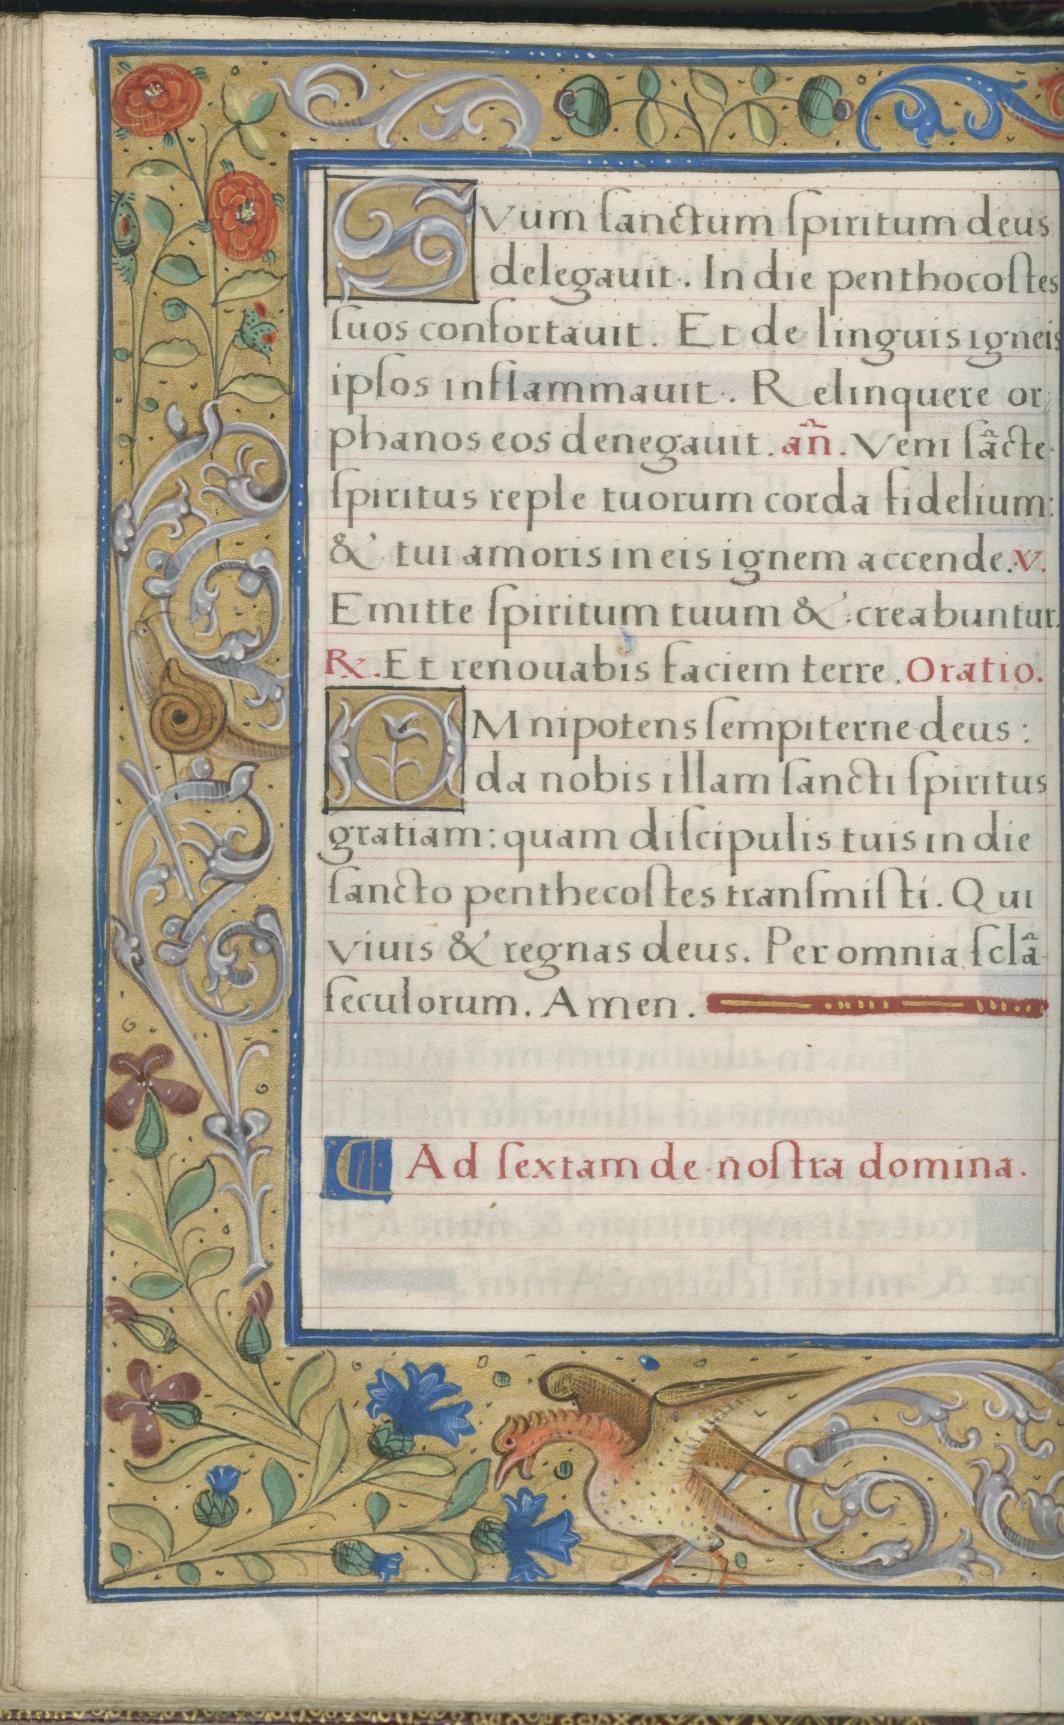 SVum ſanctum ſpiritum deus
delegauit. In die penthocoſtes
ſuos confortauit. Et de linguis igneis
ipſos inflammauit. Relinquere or
phanos eos denegauit. an̄. Veni ſācte
ſpiritus reple tuorum corda fidelium:
& tui amoris in eis ignem accende. v.
Emitte ſpiritum tuum & creabuntur.
℞. Et renouabis faciem terre. Oratio.
OMnipotens ſempiterne deus:
da nobis illam ſancti ſpiritus
gratiam: quam diſcipulis tuis in die
ſancto penthecoſtes tranſmiſti. Qui
viuis & regnas deus. Per omnia ſclā
ſeculorum. Amen.
Ad ſextam de noſtra domina.